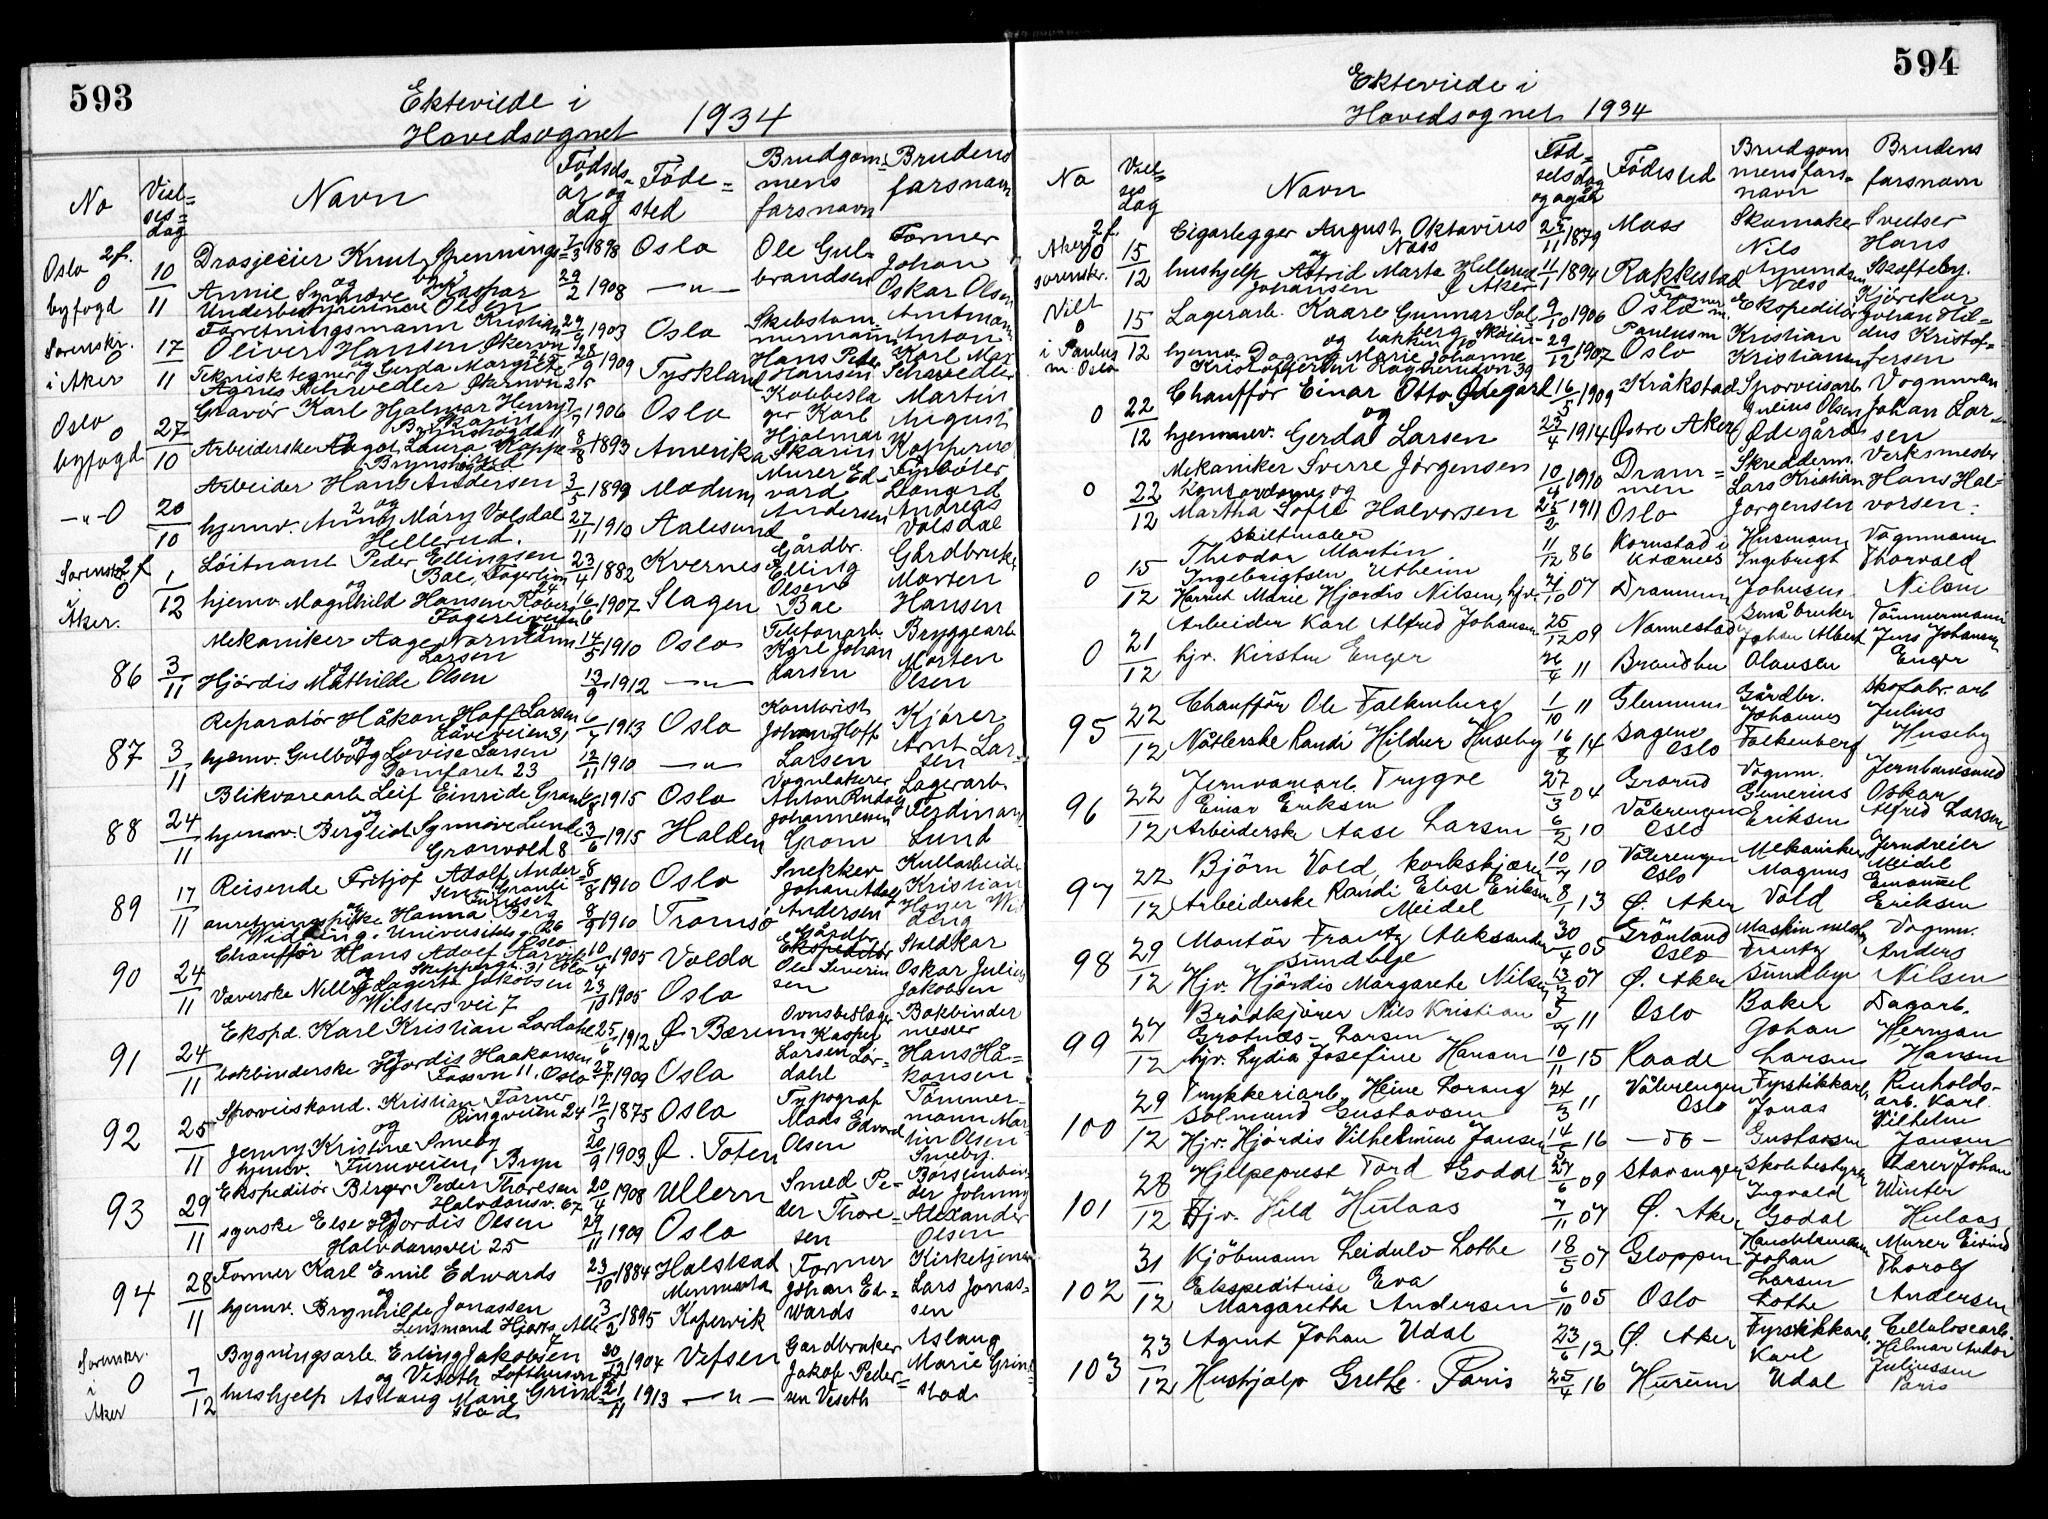 593
Ektevilde i
Hovedsognet 1934
No
Viel=
ses=
dag
Navn
Fødsels-
år og
dag
Føde=
sted
Brudgom=
mens
farsnavn
Brudens
farsnavn
Oslo 2f.
0
byfogd
10/11
Drosjeeier Knut Spennings-
og
Annie Synnøve Kaspar
Underbestyrerinne Olsen
7/3 1898 Oslo
29/2 1908 —"—
Ole Gul=
brandsen
Former
Johan
Oskar Olsen
Sorenskr.
0
i Aker
17/11
Forretningsmann Kristian
Oliver Hansen Økernvn.
Teknisk tegner og Gerda Margrete
Agnes Schwedler Økernvn 215
29/9 1903 Oslo
28/9 1909 Tyskland
Skibstøm=
mermann
Hans Peder
Hansen
Amtmann
Anton
Karl Max
Schwedler
Oslo
0
byfogd
27/10
Gravør Karl Hjalmar Henry
Skarin
Brynshøgda 11
Arbeiderske Aagot Laura Koppe
Brynshøgda
7/7 1906 Oslo
8/8 1893 Amerika
Kobbesla
ger Karl
Hjalmar
Skarin
Martin
August
Kopperud
—"— 0
20/10
Arbeider Hans Andersen
2 og
hjemv. Anny Mary Volsdal
Hellerud.
3/5 1899 Modum
27/11 1910 Aalesund
Murer Ed-
vard
Andersen
Fyrbøter
Leonard
Andreas
Volsdal
Sorenskr. 2f
0
Aker.
1/12
Løitnant Peder Ellingsen
Boe, Fagerlien
og 4
hjemv. Magnhild Hansen Roberg
Fagerliveien 6
23/4 1882 Kvernes
16/6 1907 Slagen
Gårdbr.
Elling
Olsen
Boe
Gårdbruker
Morten
Hansen
86 3/11
Mekaniker Aage Normann
Larsen
og
Hjördis Mathilde Olsen
14/5 1910 Oslo
13/9 1912 —"—
Telefonarb.
Karl Johan
Larsen
Bryggearb
Morten
Olsen
87 3/11
Reparatör Håkon Hoff Larsen
Låveveien 31
og
hjemv. Gulborg Lovise Larsen
Tomfaret 23
6/7 1913 Oslo
12/11 1910 —"—
Kontorist
Johan Hoff
Larsen
Kjörer
Arnt Lar-
sen
88 24/11
Blikvarearb. Leif Einride Grom
og
hjemv. Bergliot Synnøve Lunde
Granvold 8
6/8 1915 Oslo
3/6 1915 Halden
Vognlakerer
Anton Rudolf
Johannessen
Grom
Lagerarb.
Ferdinand
Lund
89 17/11
Reisende Fritjof Adolf Ander
sen Granli
Grinset
og
anretningspike Hanna Berg
Widding. Universitetsg. 26
Oslo.
8/8 1910 Oslo
8/9 1910 Tromsø
Snekker
Johan Adolf
Andersen
Kullarbeider
Kristian
Høyer Wid
ding
90 24/11
Chauffør Hans Adolf
og Skippergt. 31 Oslo
Væverske Nelly Lagerta Jakobsen
Wilstersvei 7
10/4 1905 Volda
23/10 1905 Oslo
Gårdbr.
Ekspeditör
Ole Severin
sen
Stallkar
Oskar Julius
Jakobsen
91 24/11
Ekspd. Karl Kristian Lørdahl
og
bokbinderske Hjørdis Haakonsen
Fossvn 11. Oslo
25/6 1912 Ø Bærum
27/7 1909 Oslo
Ovnsbeslager
Kasper
Larsen Lør-
dahl
Bokbinder
mester
Hans Hå=
konsen
92 25/11
Sporveiskond. Kristian Torner
Ringveien 24
og
Jenny Kristine Sneby
hjemv. Furuveien, Bryn
12/3 1875 Oslo
20/9 1903 Ø. Toten
Typograf
Mads Edvard
Olsen
Tömmer-
mann Mar-
tin Olsen
Sneby.
93 29/11
Ekspeditör Birger Peder Thoresen
Halvdansv. 67
og
syerske Else Hjordis Olsen
Halvdansvei 25
20/4 1908 Ullern
29/11 1909 Oslo
Smed Pe-
der Thore-
sen
Børstenbin-
der Johnny
Alexander
Olsen
94 28/11
Former Karl Emil Edwards
og
hjemv. Brynhilde Jonassen
Lensmand Hjorts Alle
23/10 1884 Halstad
Minnesota
3/2 1895 Kopervik
Former
Johan Ed=
wards
Kirketjener
Lars Jonas-
sen
Sorenskr.
i 0
Aker
7/12
Bygningsarb. Erling Jakobsen
og Viseth Lofthusvn 7
hushjelp Aslaug Marie Grind-
stad
30/12 1904 Vefsen
21/11 1913 —"—
Gardbruker
Jakob Peder=
sen Veseth
Aslaug
Marie Grind
stad
594
Ektevilde i
Hovedsognet 1934
No
Viel=
ses
dag
Navn
Fød=
selsdag
og år
Fødested
Brudgom
mens fars=
navn
Brudens
farsnavn
2f.
Aker 0
sorenskr.
15/12
Cigarlegger August Oktavius
og Næss
hushjelp Astrid Marta Hellerud
Johansen Ø Aker
25/11 1879 Moss
11/1 1894 Rakkestad
Skomaker
Nils
Amundsen
Næss
Sveitser
Hans
Skofteby.
Vilt
0
i Paulus
m. Oslo
15/12
Lagerarb. Kaare Gunnar Sol
berg
og bakken 10 Skøien-
hjemv. Dagny Marie Johanne
Kristoffersen Kogherudvn 39
9/10 1906 Oslo
Paulus m
29/12 1907 Oslo
Ekspeditör
Kristian
Kristiansen
Kjörekar
Johan Hil=
dus Kristof=
fersen
0 22/12
Chauffør Einar Otto Ødegård
og
hjemmev. Gerda Larsen
16/5 1909 Kråkstad
23/4 1914 Østre Aker
Sporveisarb
Julius Olsen
Ødegård
Vognman
Johan Lar-
sen
0 22/12
Mekaniker Sverre Jörgensen
Kontordame og
Martha Sofie Halvorsen
10/4 1910 Dram=
men
25/2 1911 Oslo
Skredderm.
Lars Kristian
Jorgensen
Verksmester
Hans Hal-
vorsen.
0 15/12
Skiltmaler
Theodor Martin
Ingebrigtsen Utheim
Harriet Marie Hjordis Nilsen, hjv.
11/12 86 Kornstad i
Kværnes
21/10 07 Drammen
Husmann
Ingebrigt
Johnsen
Vognmann
Thorvald
Nilsen
0 21/12
Arbeider Karl Alfred Johansen
hjv. Kirsten Enger
25/12 09 Nannestad
26/4 11 Brandbu
Småbruker
Johan Albert
Olausen
Tömmermann
Jens Johansen
Enger
95 22/12
Chauffør Ole Falkenberg
Nåtlerske Randi Hildur Huseby
1/10 11 Glemmen
16/8 14 Sagene
Oslo
Gårdbr.
Johannes
Falkenberg
Skofabr. arb
Julius
Huseby
96 22/12
Jernvarearb. Trygve
Einar Eriksen
Arbeiderske Aase Larsen
27/3 04 Grorud
6/2 10 Vålerengen
Oslo
Vognm.
Gunerius
Eriksen
Jernbanemand
Oskar
Alfred Larsen
97 22/12
Björn Vold, korkskjærer
Arbeiderske Randi Elise Eriksen
Meidel
10/7 10 Vålerengen
Oslo
8/1 13 Ø. Aker
Mekaniker
Magnus
Vold
Jerndreier
Meidel
Emanuel
Eriksen
98 29/12
Montör Frantz Aleksander
Sundbye
Hjv. Hjördis Margarete Nilsen
30/4 05 Grönland
Oslo
23/3 07 Ø. Aker
Maskinmester
Frantz
Sundbye
Vognm.
Anders
Nilsen
99 27/12
Brödkjörer Nils Kristian
Grotnæs-Larsen
hjv. Lydia Josefine Hansen
5/7 11 Oslo
10/11 15 Raade
Baker
Johan
Larsen
Dagarb.
Herman
Hansen
100 29/12
Trykkeriarb. Heine Lorang
Solmund Gustavsen
Hjv. Hjördis Vilhelmine Jansen
24/3 11 Vålerengen
Oslo
14/5 16 — do —
Fyrstikkarb.
Jonas
Gustavsen
Renholds-
arb. Karl
Vilhelm
Jansen
101 28/12
Hjelpeprest Tord Godal
Hjv. Hild Hulaas
27/6 09 Stavanger
7/11 07 Ø. Aker
Skolebestyrer
Ingvald
Godal
Lærer Johan
Winter
Hulaas
102 31/12
Kjöbmann Leidulv Lothe
Ekspeditrise Eva
Margarethe Andersen
18/5 07 Gloppen
6/10 05 Oslo
Handelsmann
Johan
Larsen
Lothe
Murer Eivind
Thorolf
Andersen
103 23/12
Agent Johan Udal
Hushjelp Grethe Paris
23/6 12 Ø. Aker
25/4 16 Hurum
Fyrstikkarb.
Karl
Udal
Cellulosearb.
Hilmar Andor
Juliussen
Paris